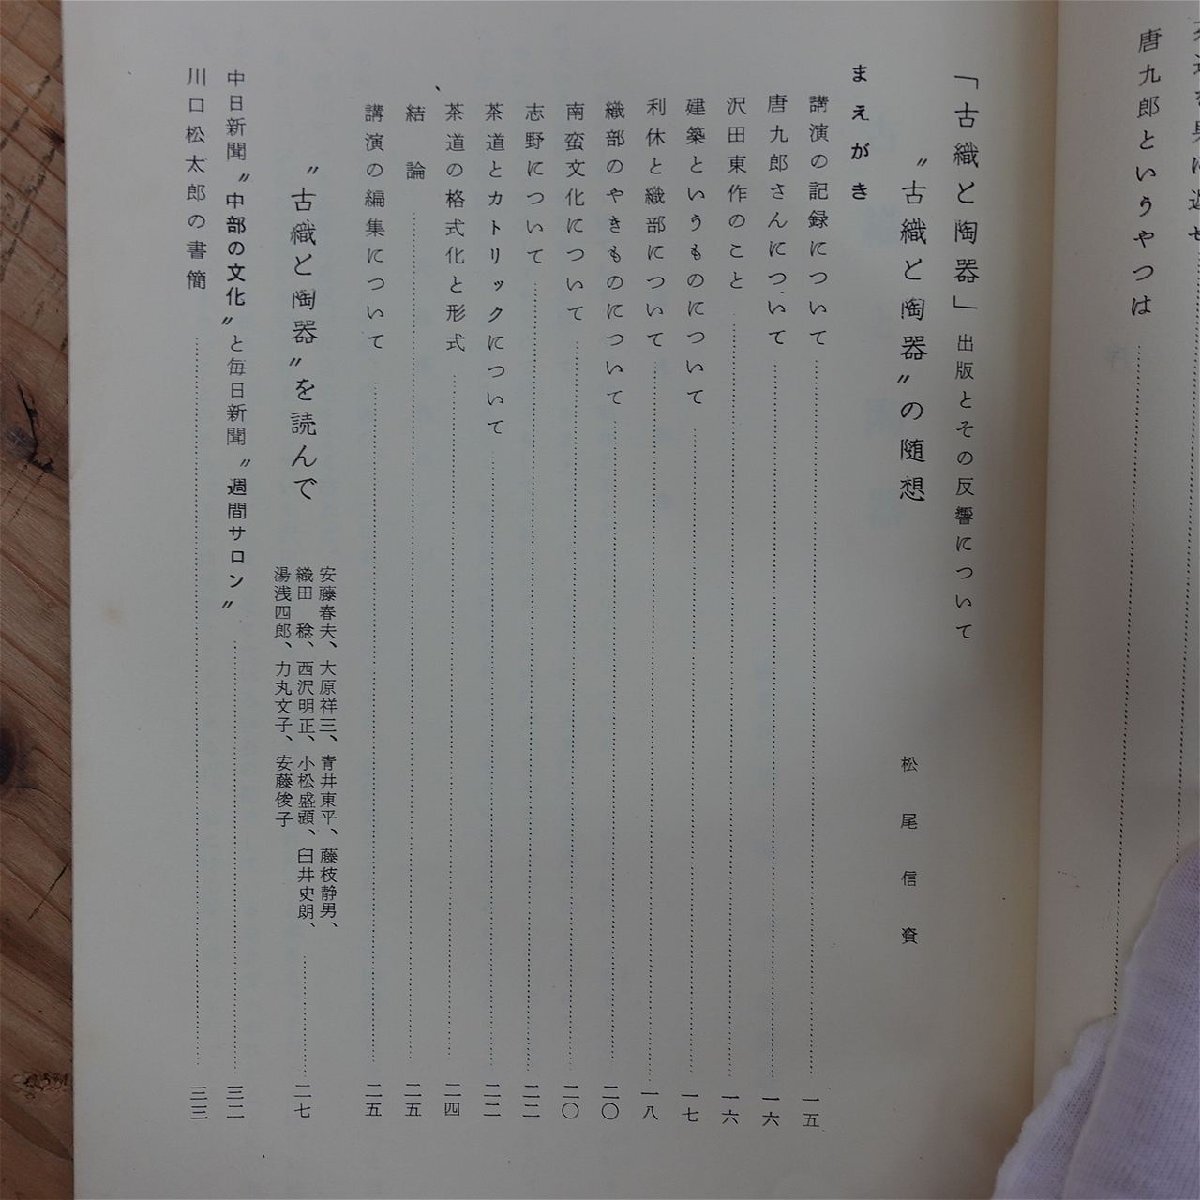 唐九郎というやつは
「古織と陶器」出版とその反響について
〝古織と陶器〟の随想 松尾信資
まえがき
講演の記録について 一五
唐九郎さんについて 一六
沢田東作のこと 一六
建築というものについて 一七
利休と織部について 一八
織部のやきものについて 二〇
南蛮文化について 二〇
志野について 二二
茶道とカトリックについて 二二
茶道の格式化と形式 二四
結論 二五
講演の編集について 二五
〝古織と陶器〟を読んで 二七
安藤春夫、大原祥三、青井東平、藤枝静男、
織田 稔、西沢明正、小松盛顕、臼井史朗、
湯浅四郎、力丸文子、安藤俊子
中日新聞〝中部の文化〟と毎日新聞〝週間サロン〟 三二
川口松太郎の書簡 三三